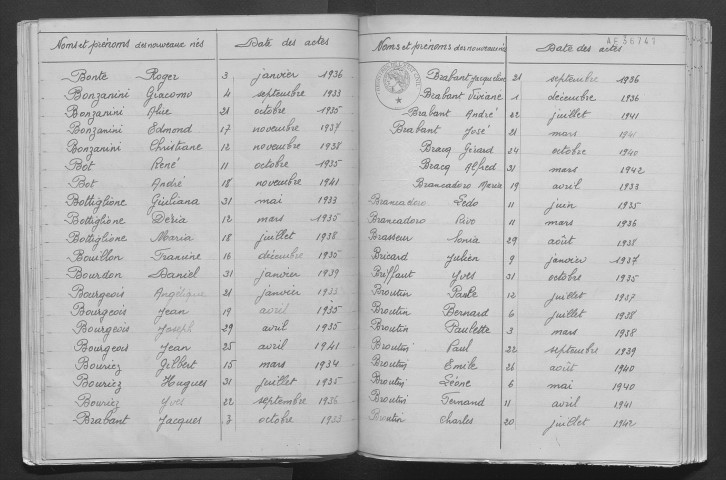 Noms et prénoms des nouveaux nés Date des actes
Bonte Roger 3 janvier 1936
Bonzanini Giacomo 4 septembre 1933
Bonzanini Alie 21 octobre 1935
Bonzanini Edmond 17 novembre 1937
Bonzanini Christiane 12 novembre 1938
Bot René 11 octobre 1935
Bot André 18 novembre 1941
Bottiglione Giuliana 31 mai 1933
Bottiglione Deria 12 mars 1935
Bottiglione Maria 18 juillet 1938
Bouillon Francine 16 décembre 1935
Bourdon Daniel 31 janvier 1939
Bourgeois Angélique 21 janvier 1933
Bourgeois Jean 19 avril 1935
Bourgeois Joseph 29 avril 1935
Bourgeois Jean 25 avril 1941
Bouriez Gilbert 15 mars 1934
Bouriez Hugues 31 juillet 1935
Bouriez Yves 22 septembre 1936
Brabant Jacques 7 octobre 1933
AE36741
Noms et prénoms des nouveaux nés Date des actes
Brabant Jacqueline 21 septembre 1936
Brabant Viviane 1 décembre 1936
Brabant André 22 juillet 1941
Brabant José 21 mars 1941
Bracq Gérard 24 octobre 1940
Bracq Alfred 31 mars 1942
Brancadoro Maria 19 avril 1933
Brancadoro Ledo 11 juin 1935
Brancadoro Pivo 11 mars 1936
Brasseur Sonia 29 août 1938
Bricard Julien 9 janvier 1937
Briffaut Yves 31 octobre 1935
Broutin Paule 12 juillet 1937
Broutin Bernard 6 juillet 1938
Broutin Paulette 3 mars 1938
Broutin Paul 22 septembre 1939
Broutin Emile 26 août 1940
Broutin Léone 6 mai 1940
Broutin Fernand 11 avril 1941
Broutin Charles 20 juillet 1942